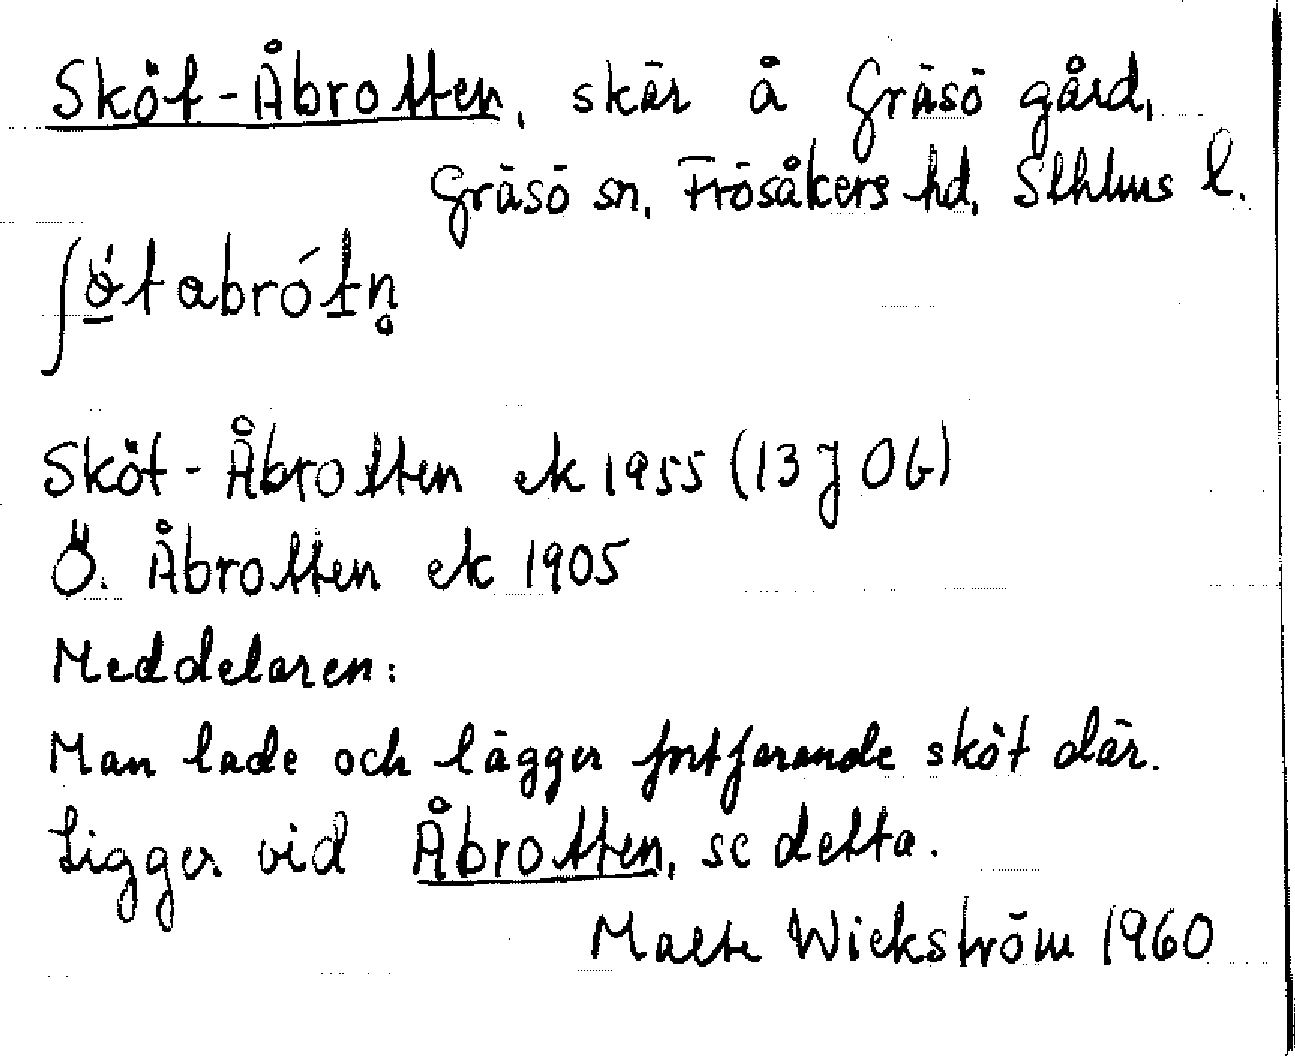 Sköt-Åbrotten, skär å Gräsö gård,
Gräsö sn, Frösåkers hd, Sthlms l.
ʃǿ̱tabrótn̥
Sköt-Åbrotten ek 1955 (13 J 0G)
Ö. Åbrotten ek 1905
Meddelaren:
Man lade och lägger fortfarande sköt där.
Ligger vid Åbrotten, se detta.
Malte Wickström 1960